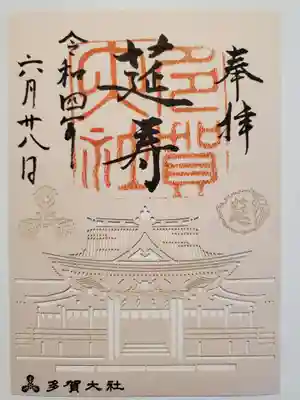 奉拝
多賀大社
延寿
令和四年
六月廿八日
多賀大社